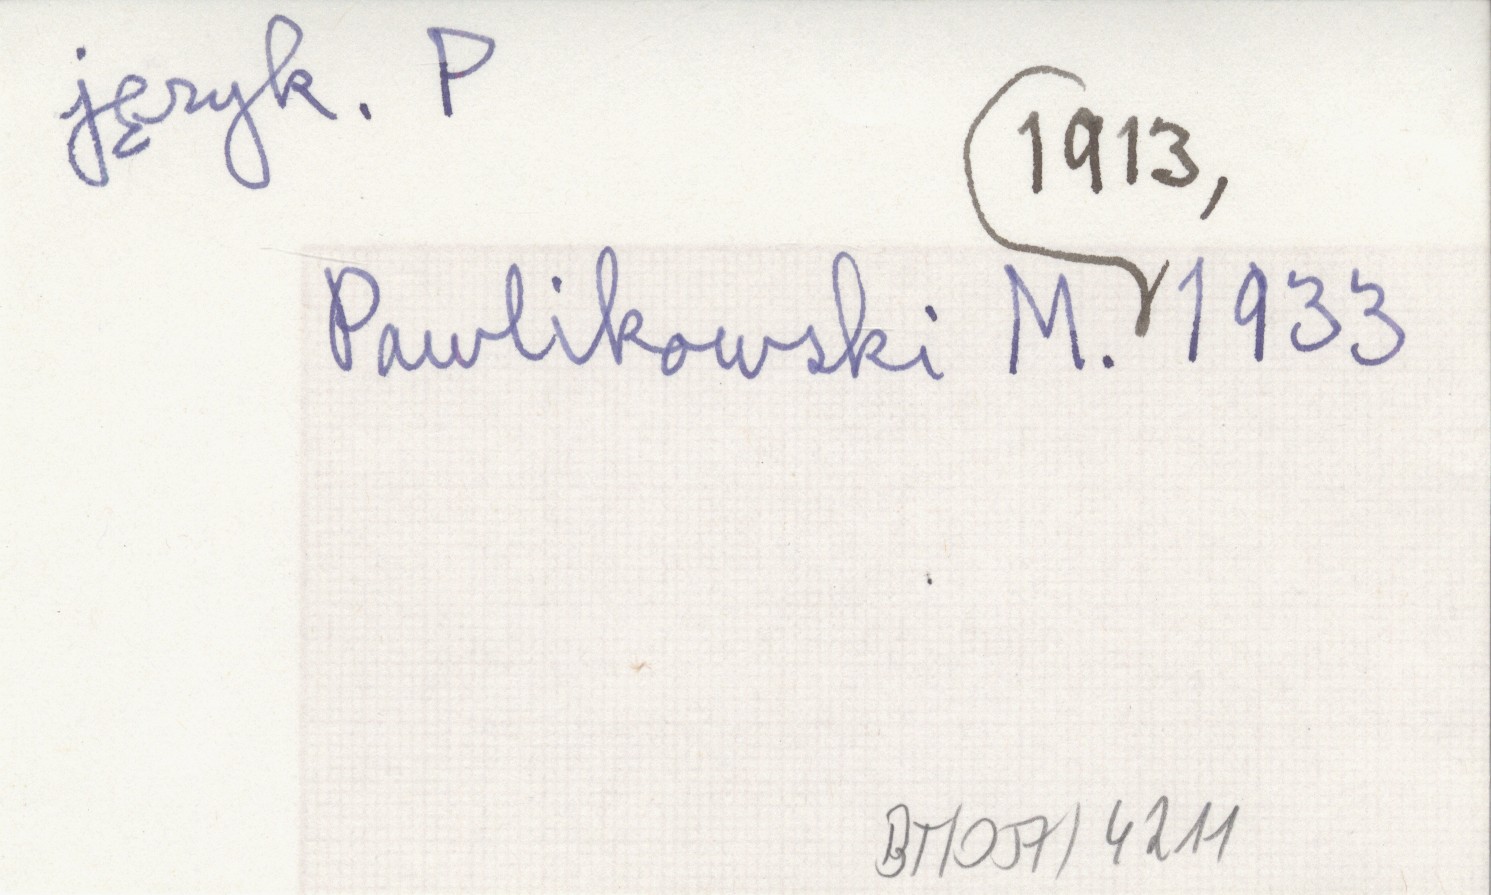 język. P
1913,
Pawlikowski M. 1933
BT/057/4211